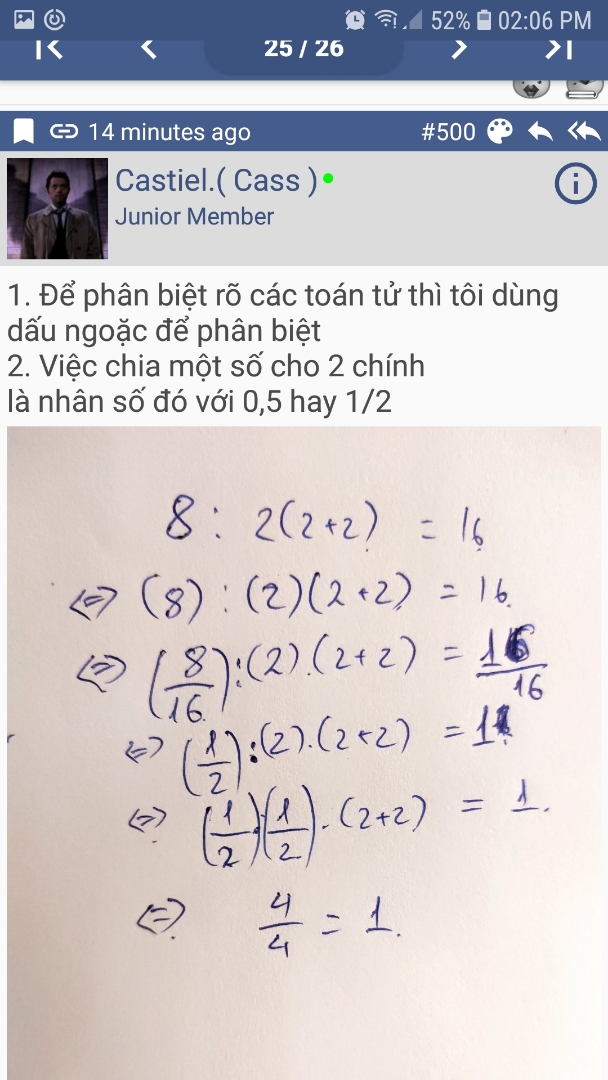 52% 02:06 PM
25 / 26
14 minutes ago #500
Castiel.( Cass )
Junior Member
1. Để phân biệt rõ các toán tử thì tôi dùng
dấu ngoặc để phân biệt
2. Việc chia một số cho 2 chính
là nhân số đó với 0,5 hay 1/2
8 : 2(2+2) = 16
<=> (8) : (2)(2+2) = 16.
<=> (8/16) : (2).(2+2) = 16/16
<=> (1/2) : (2).(2+2) = 1
<=> (1/2).(1/2).(2+2) = 1.
<=> 4/4 = 1.